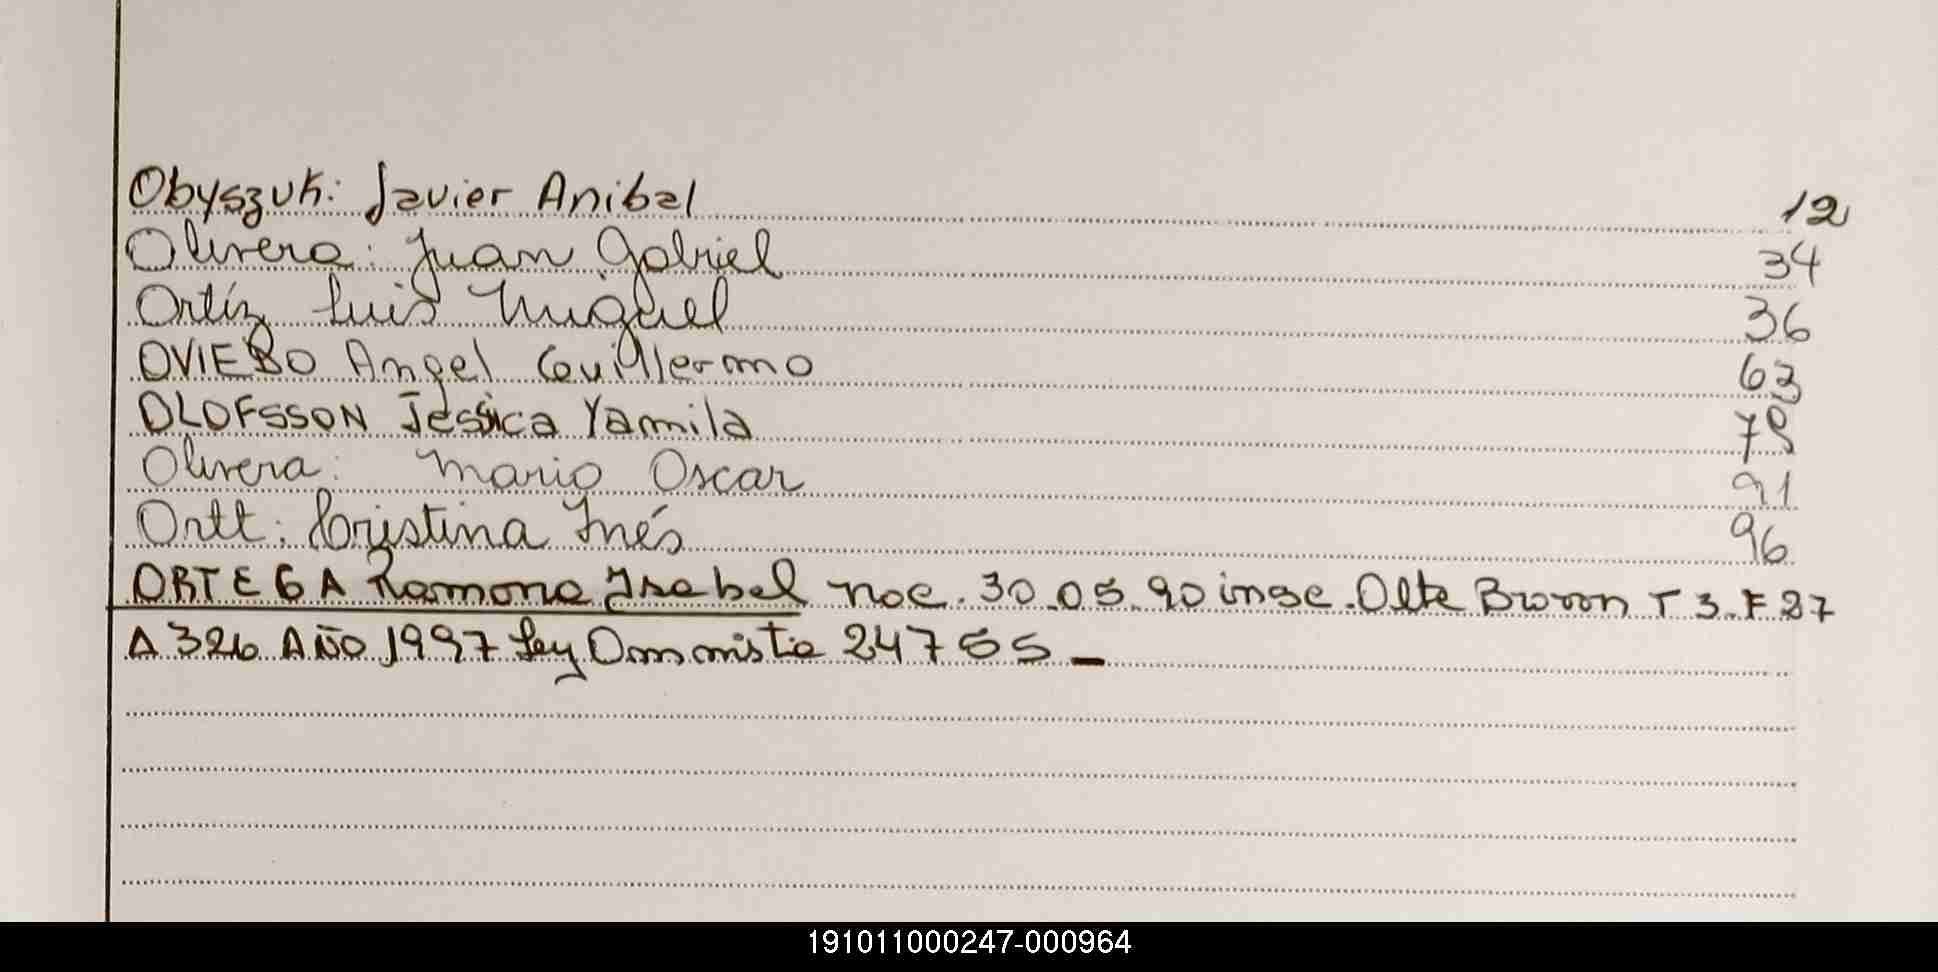 Obyszuk: Javier Anibal 12
Olivera: Juan Gabriel 34
Ortíz Luis Miguel 36
OVIEDO Angel Guillermo 63
OLOFSSON Jessica Yamila 78
Olivera: Mario Oscar 91
Ortt: Cristina Inés 96
ORTEGA Ramona Isabel nac. 30.05.90 insc. Alte Brown T 3. F 27
A 326 AÑO 1997 Ley Ammistia 24755 _
191011000247-000964